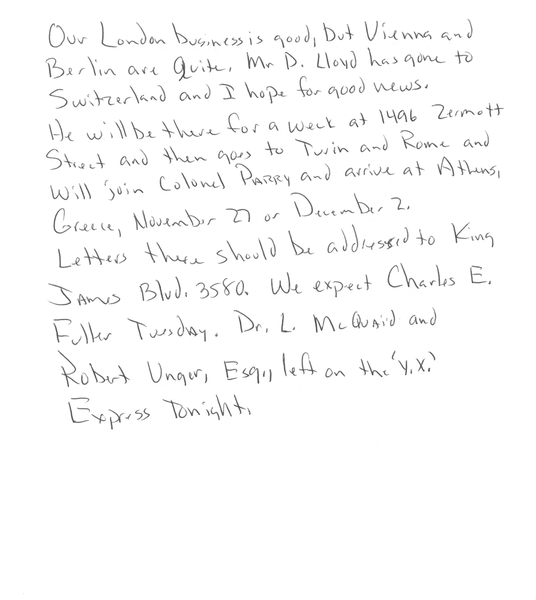 Our London business is good, but Vienna and
Berlin are Quite. Mr D. Lloyd has gone to
Switzerland and I hope for good news.
He will be there for a week at 1496 Zermott
Street and then goes to Turin and Rome and
will join Colonel PARRY and arrive at Athens,
Greece, November 27 or December 2.
Letters there should be addressed to King
JAMES Blvd. 3580. We expect Charles E.
Fuller Tuesday. Dr. L. McQuaid and
Robert Unger, Esq., left on the 'Y.X.'
Express Tonight.